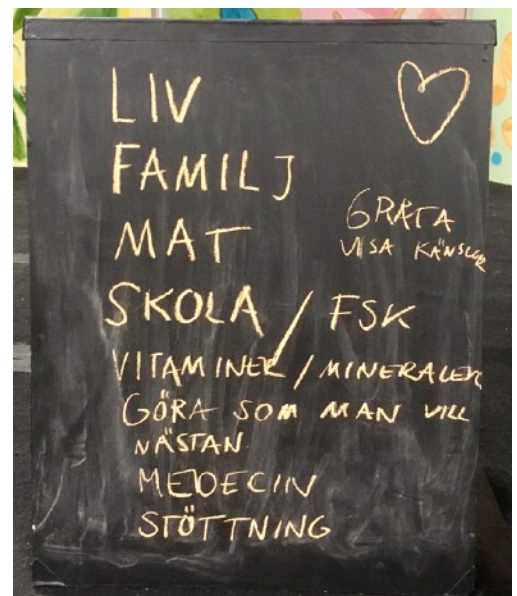 LIV
FAMILJ
MAT
GRÅTA
VISA KÄNSLOR
SKOLA / FSK
VITAMINER / MINERALER
GÖRA SOM MAN VILL
NÄSTAN
MEDECIN
STÖTTNING